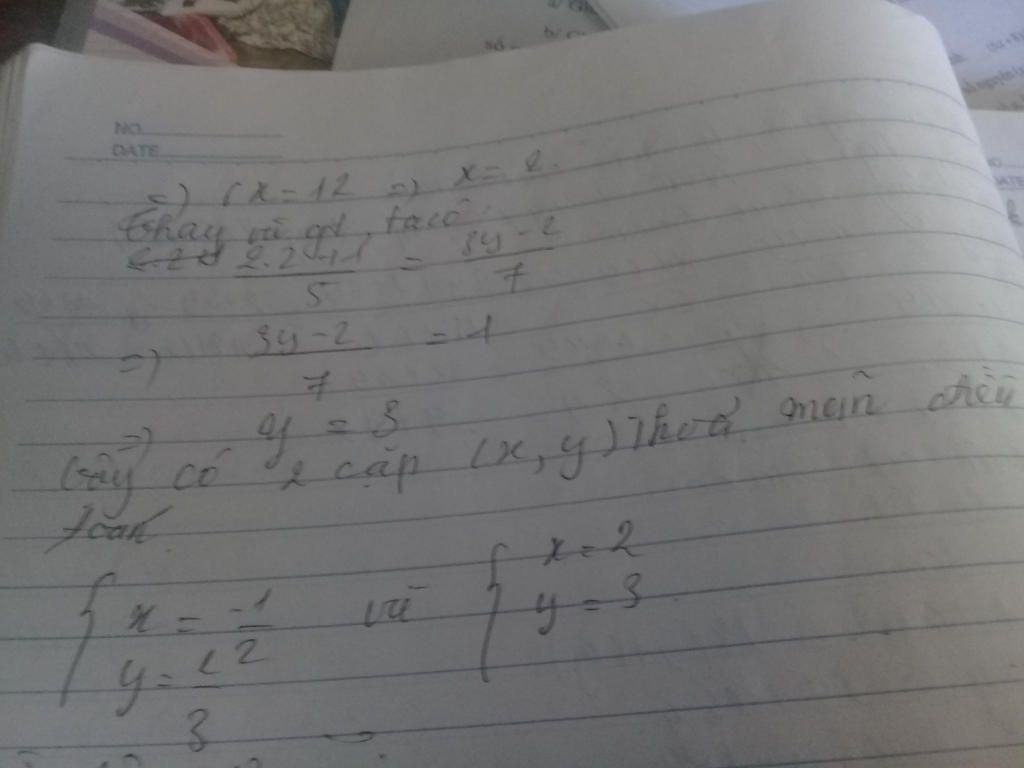 NO
DATE
=) 6x = 12 => x = 2.
Thay và gt, ta có:
2.2+1 / 5 = 3y-2 / 7
=) 3y-2 / 7 = 1
=) y = 3
Vậy có 2 cặp (x, y) Thoả mãn điều
{ x = -1/2 và { x = 2
y = 2/3 y = 3